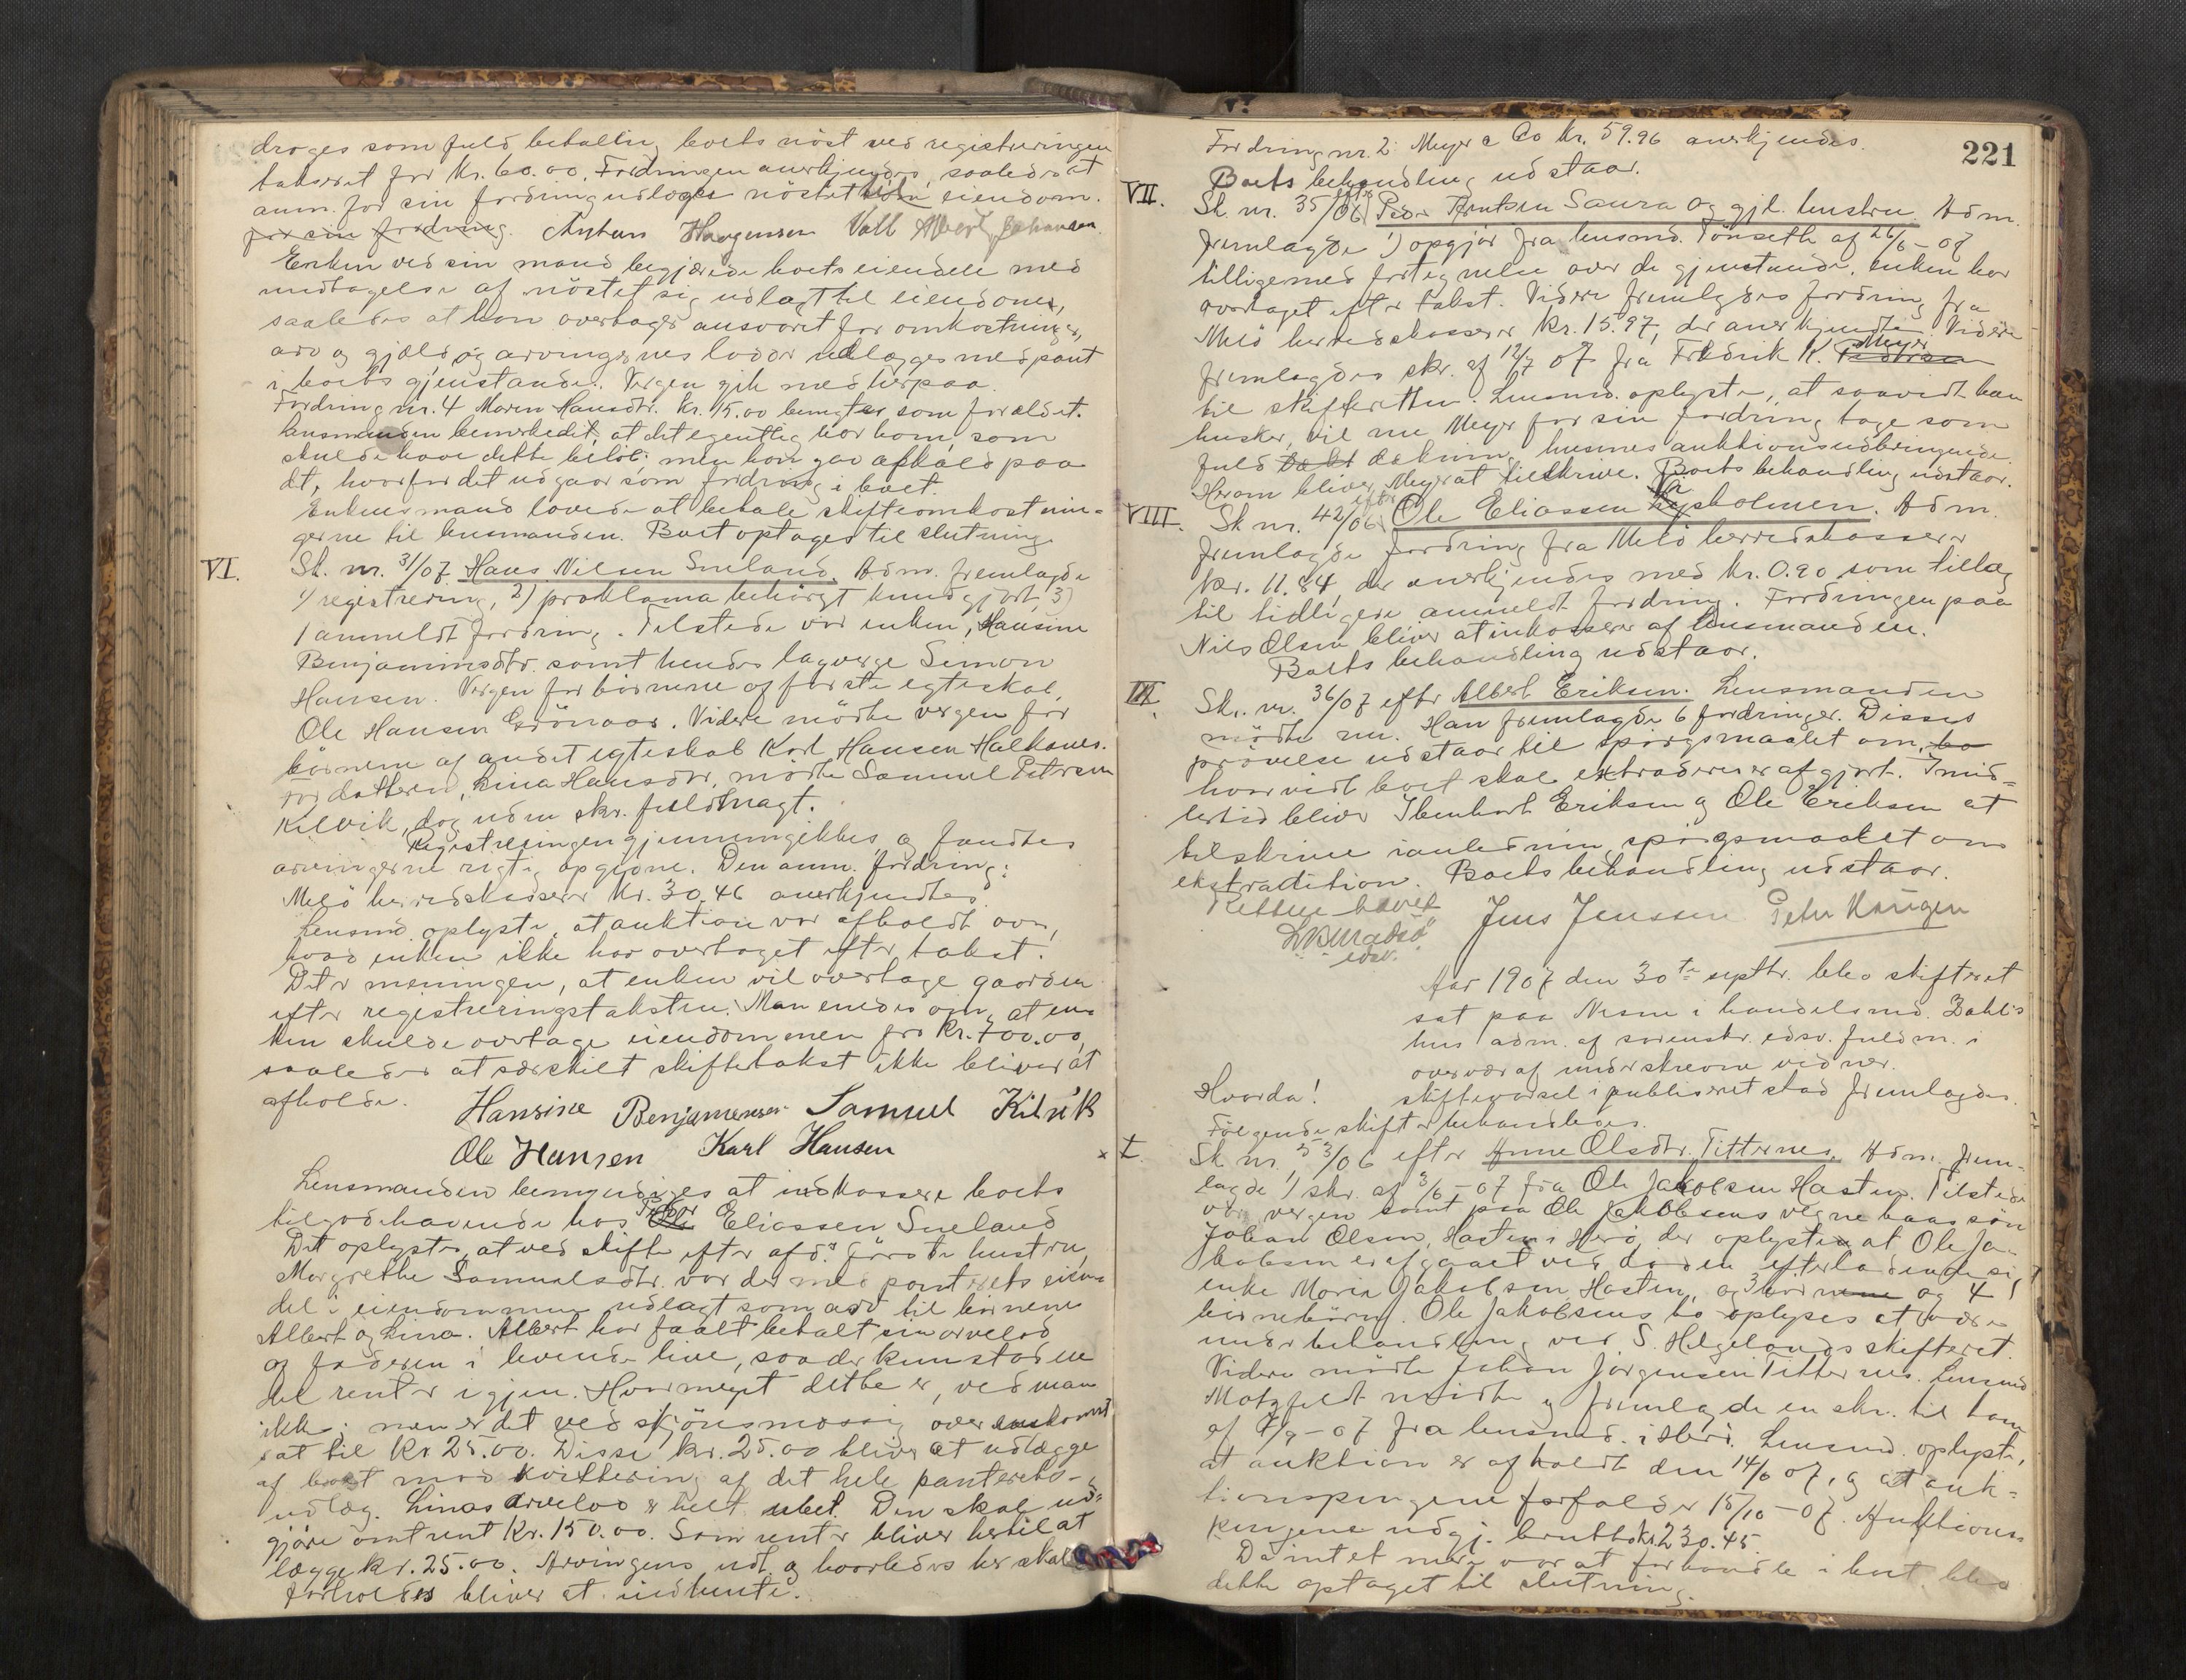 drages som fuld betaling boets nöst ved registreringen
taxeret for Kr. 60.00. Fordringen anerkjendes, saaledes at
anm. for sin fordring udlægges nöstet som eiendom.
for sin fordring. Haagensen Vall Albert Johansen
Enken ved sin mand begjærede boets eiendele med
undtagelse af nöstet sig udlagt til eiendom,
saaledes at hun overtager ansvaret for omkostninger,
arv og gjæld og arvingernes lodder udlægges med pant
i boets gjenstande. Vergen gik med herpaa.
Fordring nr. 4 Maren Hansdtr. Kr. 15.00 benegtes som forældet.
Lensmanden bemerkedt, at det egentlig var ham, som
skulde have dette belöb; men han gav afkald paa
det, hvorfor det udgaar som fordring i boet.
Enkens mand lovede at betale skifteomkostnin-
gerne til lensmanden. Boet optages til slutning.
VI. Sk. nr. 31/07 Hans Nilsen Sneland. Adm. fremlagde
1) registrering, 2) proklama behörigt kundgjort, 3)
1 anmeldt fordring. Tilstede var enken, Hansine
Benjaminsdtr. samt hendes lagverge Simon
Hansen. Vergen for börnene af förste egteskab,
Ole Hansen Grönaas. Videre mödte vergen for
börnene af andet egteskab Karl Hansen Halsanes.
For datteren, Lina Hansdtr. mödte Samuel Petersen
Kilvik, dog uden skr. fuldmagt.
Registreringen gjennemgikkes og fandtes
arvingerne rigtig opgivne. Den anm. fordring:
Melö herredskasserer Kr. 30.46 anerkjendtes.
Lensmd. oplyste, at auktion var afholdt over,
hvad enken ikke har overtaget efter takst.
Det er meningen, at enken vil overtage gaarden
efter registreringstaksten. Man enedes om, at en-
ken skulde overtage eiendommen for Kr. 700.00,
saaledes at særskilt skiftetakst ikke bliver at
afholde. Hansine Benjamensen Samuel Kilvik
Ole Hansen Karl Hansen
Lensmanden bemyndiges at indkassere boets
tilgodehavende hos Peder Eliassen Sneland
Det oplystes, at ved skifte efter afd.s förste hustru,
Margrethe Samuelsdtr. var der med panterets eien-
del i eiendommen udlagt som arv til börnene
Albert og Lina. Albert har faaet betalt sin arvelod
af faderen i levende live, saa der kun staar en
del renter igjen. Hvormeget dette er, ved man
ikke; men er det ved skjönsmæssig overenskomst
sat til Kr. 25.00. Disse kr. 25.00 bliver at udlægge
af boet mod kvittering af det hele panterets-
udlæg. Linas arvelod er helt ubet. Den skal ud-
gjöre omtrent Kr. 150.00. Som renter bliver hertil at
lægge kr. 25.00. Arvingens udt. og hvorledes her skal
forholdes bliver at indhente.
221
Fordring nr. 2: Meyer & Co Kr. 59.96 anerkjendes.
Boets behandling udstaar.
VII. Sk. nr. 35/06 efter Peder Arntsen Saura og gjl. hustru. Adm.
fremlagde 1) opgjör fra lensmd. Tönseth af 26/6-07
tilligemed fortegnelse over de gjenstande, enken har
overtaget efter takst. Videre fremlagdes fordring fra
Melö herredskasserer Kr. 15.97, der anerkjendtes. Videre
fremlagdes skr. af 12/7 07 fra Fredrik K. Meyer
til skifteretten. Lensmd. oplyste, at saavidt han
husker, vil nu Meyer for sin fordring tage som
fuld dækning husenes auktionsudbringende.
Herom bliver Meyer at tilskrive. Boets behandling udstaar.
VIII. Sk nr. 42/06 efter Ole Eliassen holmen. Adm.
fremlagde fordring fra Melö herredskasserer
Kr. 11.84, der anerkjendes med Kr. 0.90 som tillæg
til tidligere anmeldt fordring. Fordringen paa
Nils Olsen bliver at inkassere af lensmanden.
Boets behandling udstaar.
IX. Sk. nr. 36/07 efter Albert Eriksen. Lensmanden
mödte nu. Han fremlagde 6 fordringer. Disses
prövelse udstaar til spörgsmaalet om, bo
hvorvidt boet skal extraderes er afgjort. Imid-
lertid bliver Ibenhart Eriksen og Ole Eriksen at
tilskrive i anledning spörgsmaalet om
ekstradition. Boets behandling udstaar.
Retten hævet
Jens Jenssen Peter
edsv.
Aar 1907 den 30te septbr. blev skifteret
sat paa Nesne i handelsmd. Dahls
hus adm. af sorenskr. edsv. fuldm. i
overvær af underskrevne vidner.
Hvorda! Skiftevarsel i publiseret stand fremlagdes.
Fölgende skifter behandledes.
I. Sk nr. 33/06 efter Anne Olsdtr. Titternes. Adm. frem-
lagde 1) skr. af 3/6-07 fra Ole Jakobsen Hasten. Tilstede
var vergen samt paa Ole Jakobsens vegne hans sön
Johan Olsen, Hasten i Herö, der oplyste at Ole Ja-
kobsen er afgaaet ved döden efterladende sig
enke Maria Jakobsen Hasten, og 3 börnene og 4
börnebörn. Ole Jakobsens bo oplyses at være
under behandling ved S. Helgelands skifteret.
Videre mödte Johan Jörgensen Titternes. Lensmd
Motzfeldt mödte og fremlagde en skr. til ham
af 4/9-07 fra lensmd. i Herö. Lensmd. oplyste,
at auktion er afholdt den 14/6 07, og at auk-
tionspengene forfalder 15/10-07. Auktions-
pengene udgj. brutto kr. 230.45.
Da intet mere var at forhandle i boet, blev
dette optaget til slutning.